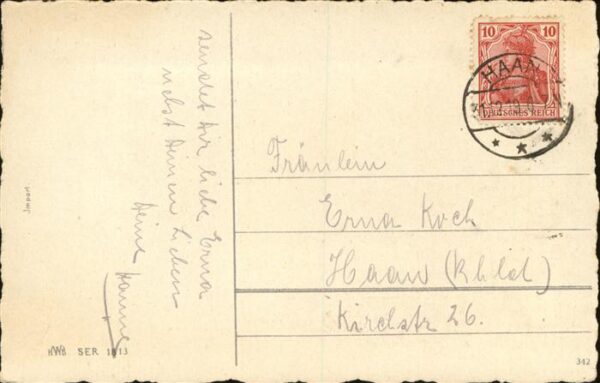 sendet dir liebe Erna
nebst Deinen Lieben
Deine Hanna
Import.
HWB SER 1113
10 10
DEUTSCHES REICH
HAAN
Fräulein
Erna Koch
Haan (Rhld)
Kirchstr 26.
342